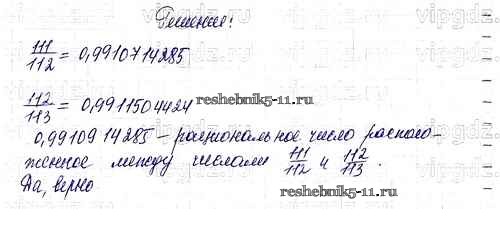 Решение!
111/112 = 0,9910714285
112/113 = 0,9911504424
reshebnik5-11.ru
0,9910914285 – рациональное число располо-
женное между числами 111/112 и 112/113.
Да, верно
reshebnik5-11.ru
vipgdz.
vipgdz.
vipgdz.